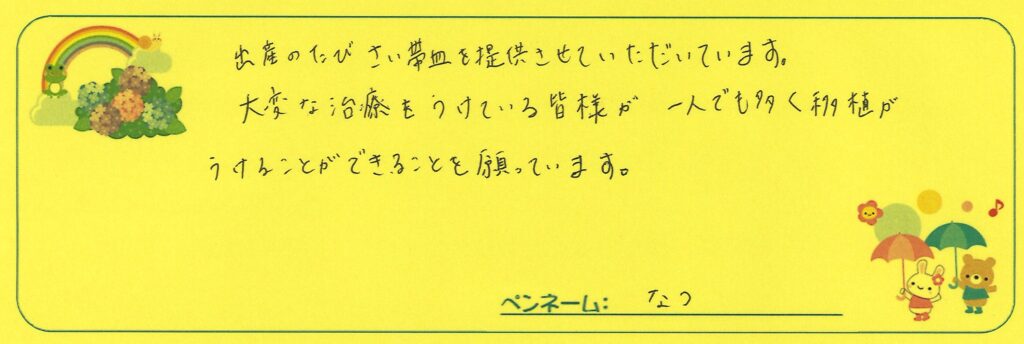 出産のたび さい帯血を提供させていただいています。
大変な治療をうけている皆様が 一人でも多く移植が
うけることができることを願っています。
ペンネーム: なつ